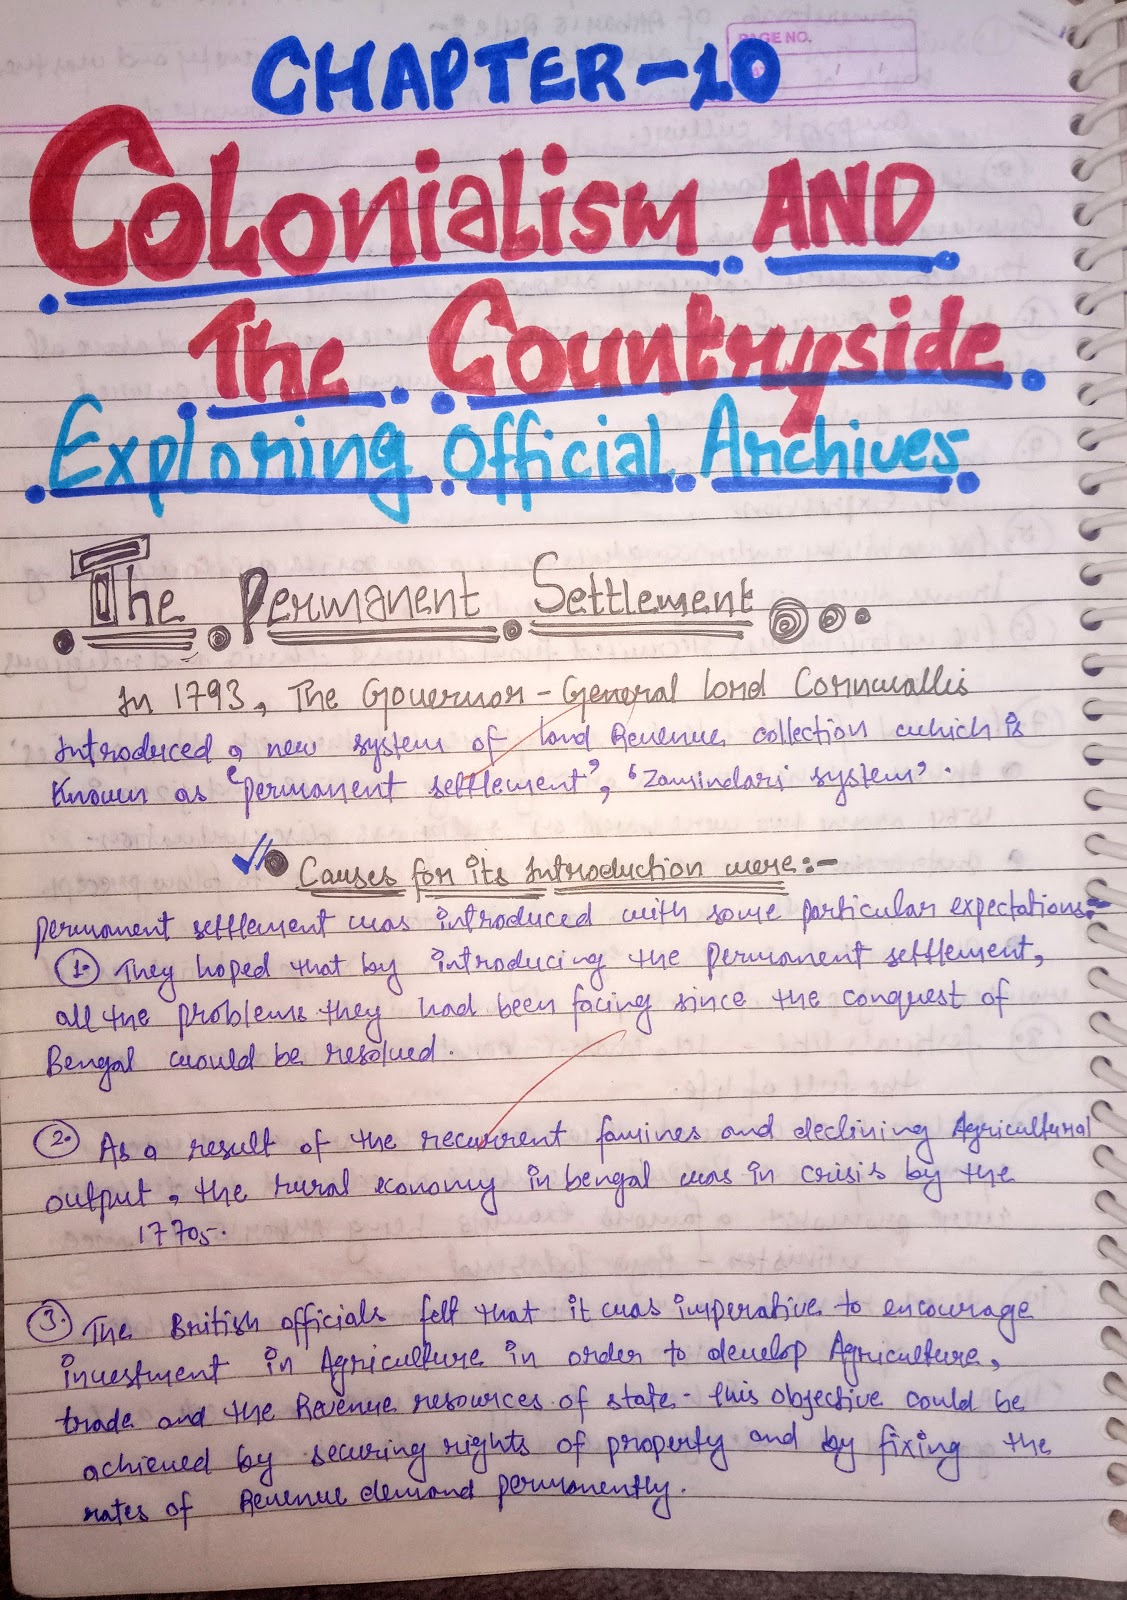 PAGE NO.
CHAPTER-10
Colonialism AND
The Countryside
Exploring Official Archives
The Permanent Settlement
In 1793, The Governor-General lord Cornwallis
Introduced a new system of land Revenue collection which is
Known as 'permanent settlement', 'Zamindari system'.
Causes for its Introduction were:-
permanent settlement was introduced with some particular expectations:-
1. They hoped that by introducing the permanent settlement,
all the problems they had been facing since the conquest of
Bengal would be resolved.
2. As a result of the recurrent famines and declining Agricultural
output, the rural economy in bengal was in crisis by the
1770s.
3. The British officials felt that it was imperative to encourage
investment in Agriculture in order to develop Agriculture,
trade and the Revenue resources of state. this objective could be
achieved by securing rights of property and by fixing the
rates of Revenue demand permanently.